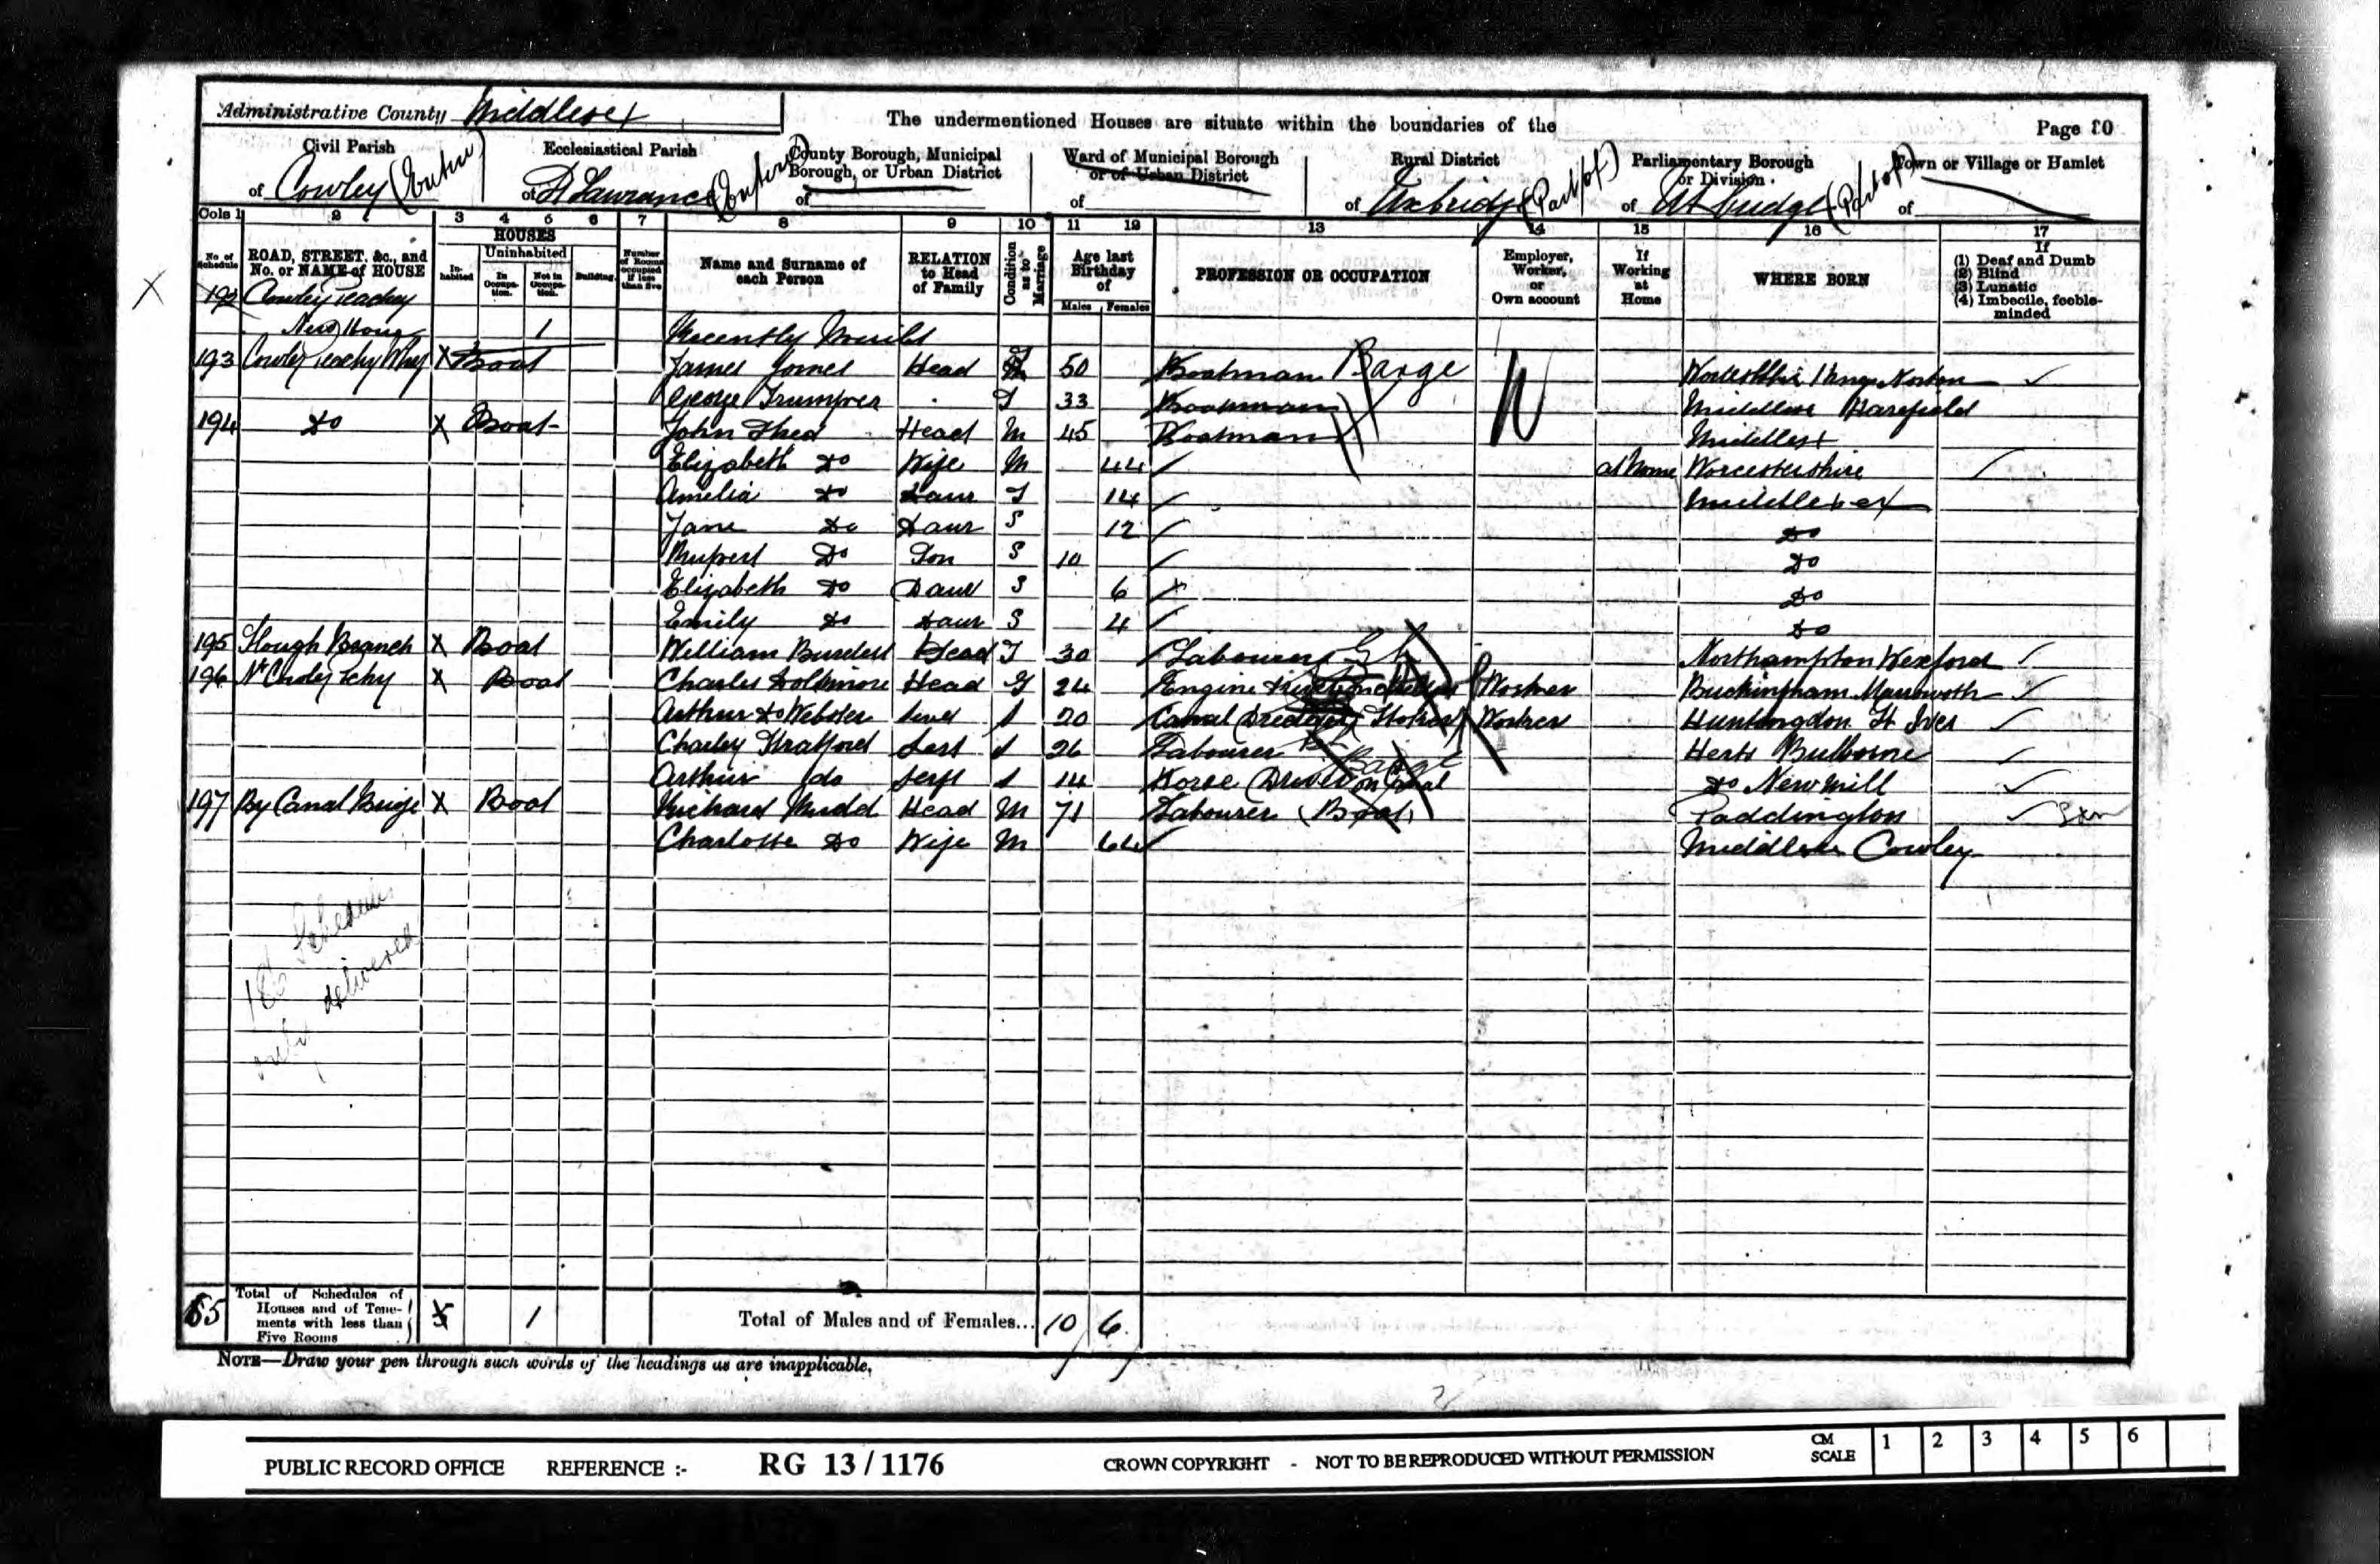 Administrative County Middlesex
The undermentioned Houses are situate within the boundaries of the
Page 20
Civil Parish of Cowley (Entire)
Ecclesiastical Parish of St Lawrance (Entire)
County Borough, Municipal Borough, or Urban District of
Ward of Municipal Borough or of Urban District of
Rural District of Uxbridge (Part of)
Parliamentary Borough or Division of Uxbridge (Part of)
Town or Village or Hamlet of
Cols 1 2 3 4 5 6 7 8 9 10 11 12 13 14 15 16 17
No of Schedule
ROAD, STREET, &c., and No. or NAME of HOUSE
HOUSES
Inhabited
Uninhabited
In Occupation.
Not in Occupation.
Building
Number of Rooms occupied if less than five
Name and Surname of each Person
RELATION to Head of Family
Condition as to Marriage
Age last Birthday of
Males Females
PROFESSION OR OCCUPATION
Employer, Worker, or Own account
If Working at Home
WHERE BORN
If
(1) Deaf and Dumb
(2) Blind
(3) Lunatic
(4) Imbecile, feeble-minded
192 Cowley Peachey
New House 1 Recently Built
193 Cowley Peachy Whf X Boat James Jomes Head S 50 Boatman Barge Norton
George S 33 Boatman Middlesex Harefield
194 Do X Boat John Head M 45 Boatman Middlesex
Elizabeth Do Wife M 44 at home Worcestershire
Amelia Do Daur S 14 Middlesex
Jane Do Daur S 12 Do
Rupert Do Son S 10 Do
Elizabeth Do Daur S 6 Do
Emily Do Daur S 4 Do
195 Slough Branch X Boat William Head S 30 Labourer Northampton
196 Nr X Boat Charles Head S 24 Engine Worker Buckingham Marsworth
Arthur Webster Servt S 20 Canal Dredger (Stoker) Worker Huntingdon St Ives
Charley Stratford Servt S 26 Labourer Herts Bulborne
Arthur do Servt S 14 Horse Driver on Canal Barge Do New Mill
197 By Canal Brige X Boat Richard Mudd Head M 71 Labourer (Boat) Paddington
Charlotte Do Wife M 64 Middlesex Cowley
186 Schedules
only delivered
Total of Schedules of Houses and of Tenements with less than Five Rooms 5 1
Total of Males and of Females... 10 6
NOTE—Draw your pen through such words of the headings as are inapplicable.
PUBLIC RECORD OFFICE REFERENCE :- RG 13 / 1176 CROWN COPYRIGHT - NOT TO BE REPRODUCED WITHOUT PERMISSION
CM SCALE 1 2 3 4 5 6